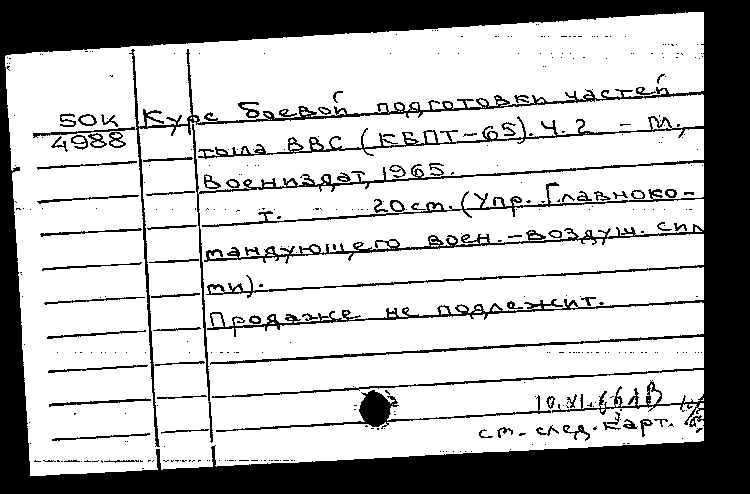 50К Курс боевой подготовки частей
4988 тыла ВВС (КБПТ-65). Ч. 2 – М.,
Воениздат, 1965.
т. 20 см. (Упр. Главноко-
мандующего воен.-воздуш. сил
ми).
Продаже не подлежит.
10.XI.66
см. след. карт.